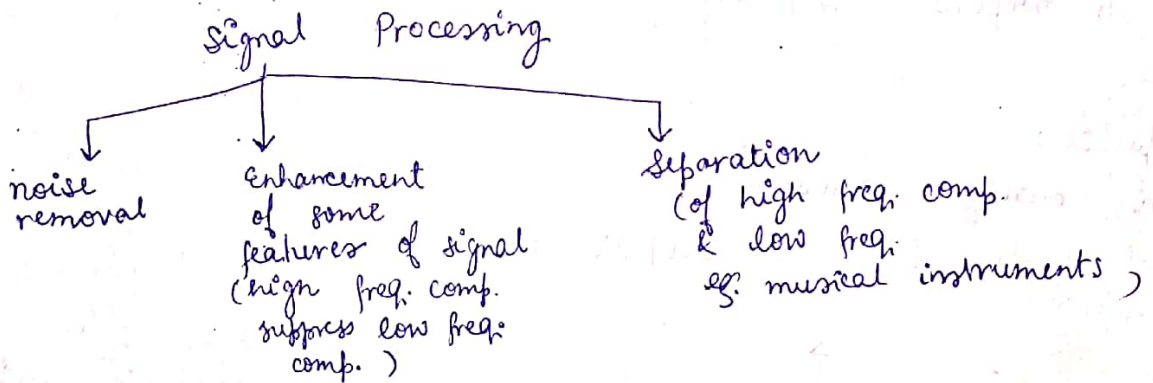 Signal Processing
noise
removal
Enhancement
of some
features of signal
(high freq. comp.
suppress low freq.
comp.)
Separation
(of high freq. comp.
& low freq.
eg. musical instruments)